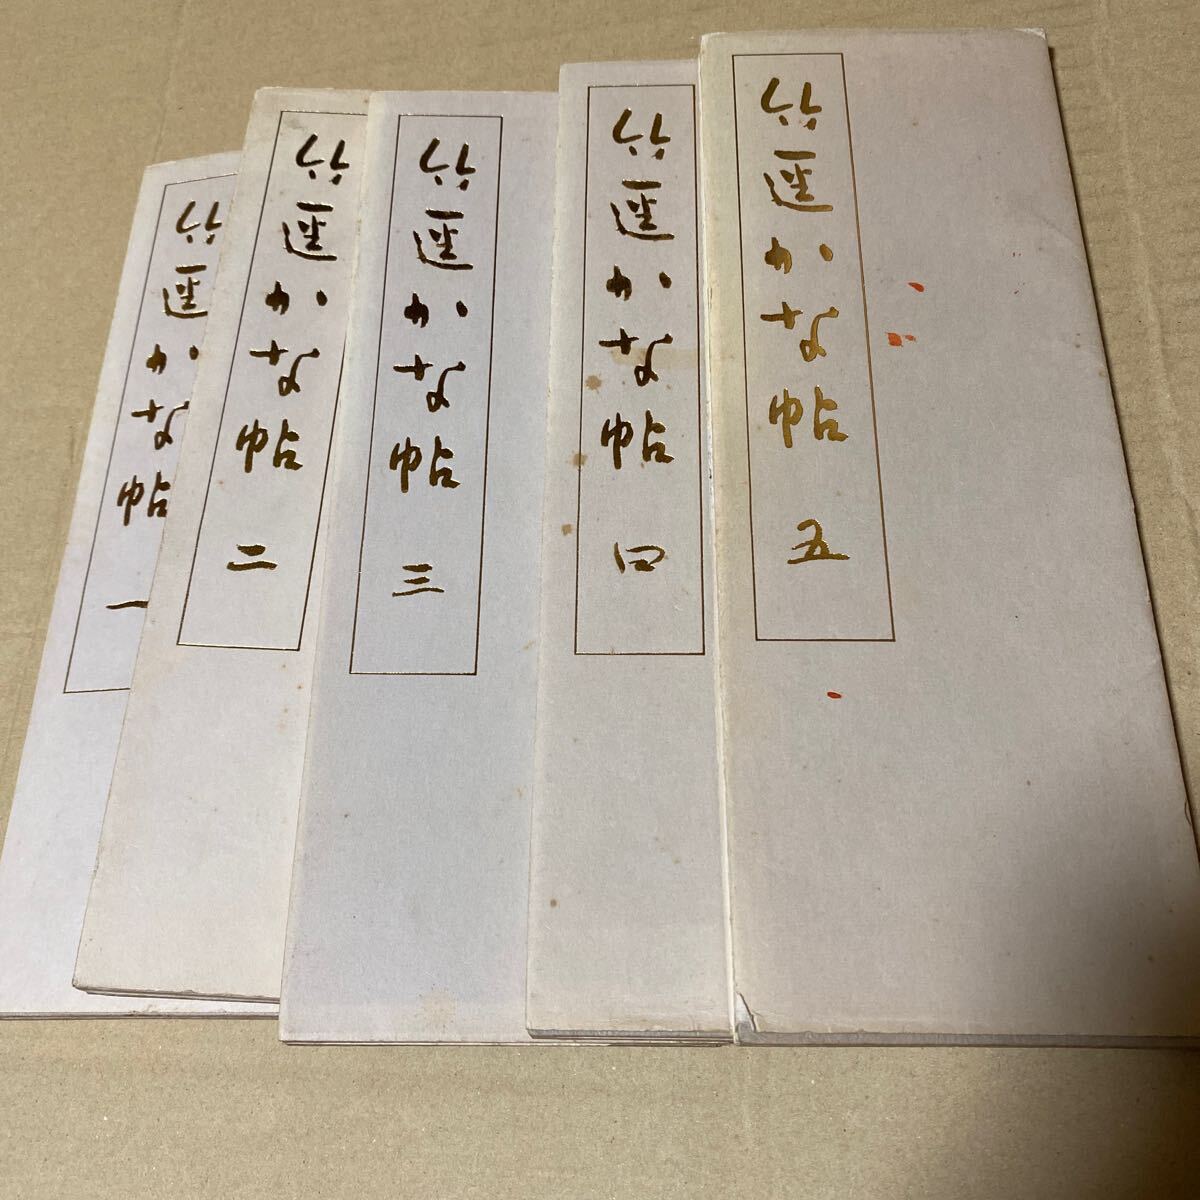 竹逕かな帖 一
竹逕かな帖 二
竹逕かな帖 三
竹逕かな帖 四
竹逕かな帖 五